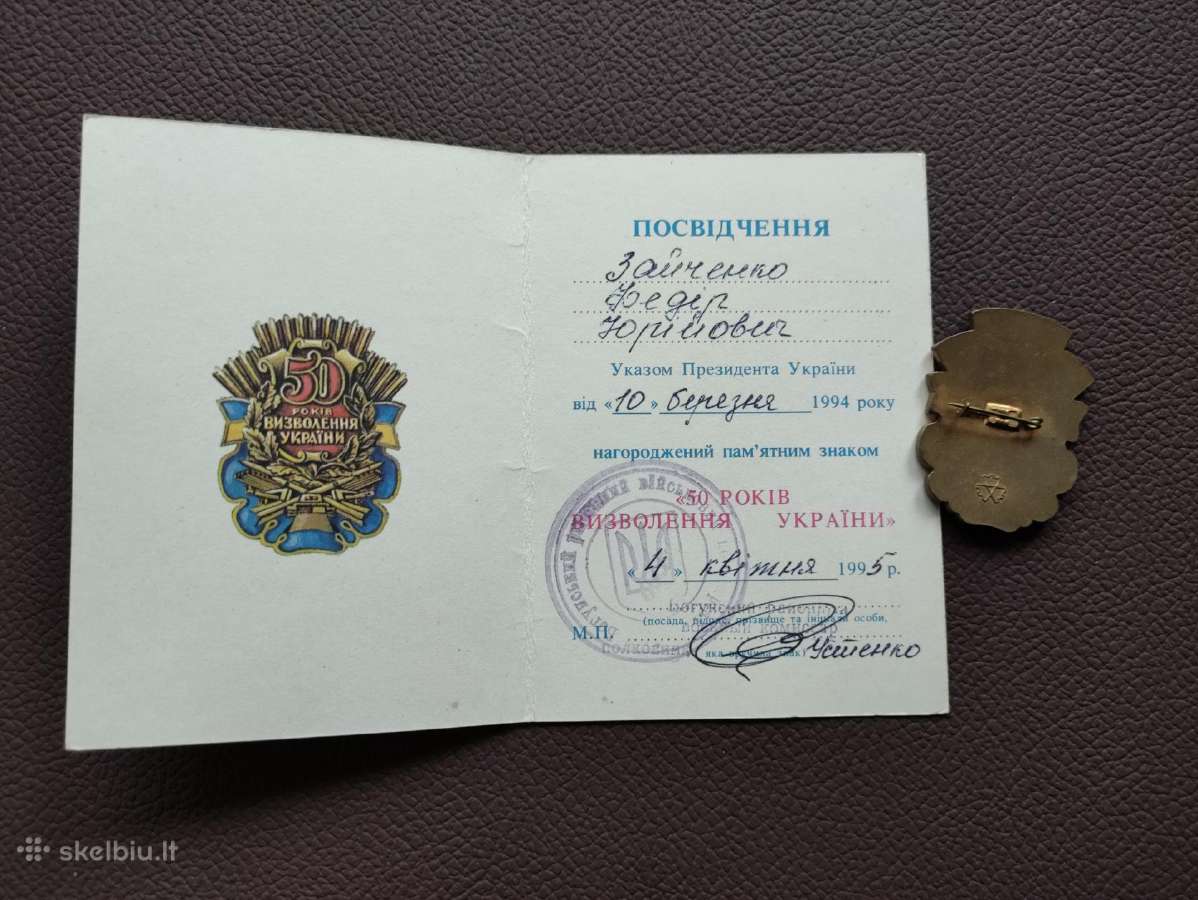 50
РОКІВ
ВИЗВОЛЕННЯ
УКРАЇНИ
ПОСВІДЧЕННЯ
Зайченко
Федір
Юрійович
Указом Президента України
від «10» березня 1994 року
нагороджений пам'ятним знаком
«50 РОКІВ
ВИЗВОЛЕННЯ УКРАЇНИ»
«4» квітня 1995 р.
(посада, підпис, прізвище та ініціали особи,
М.П.
яка вручила знак)
Устенко
skelbiu.lt